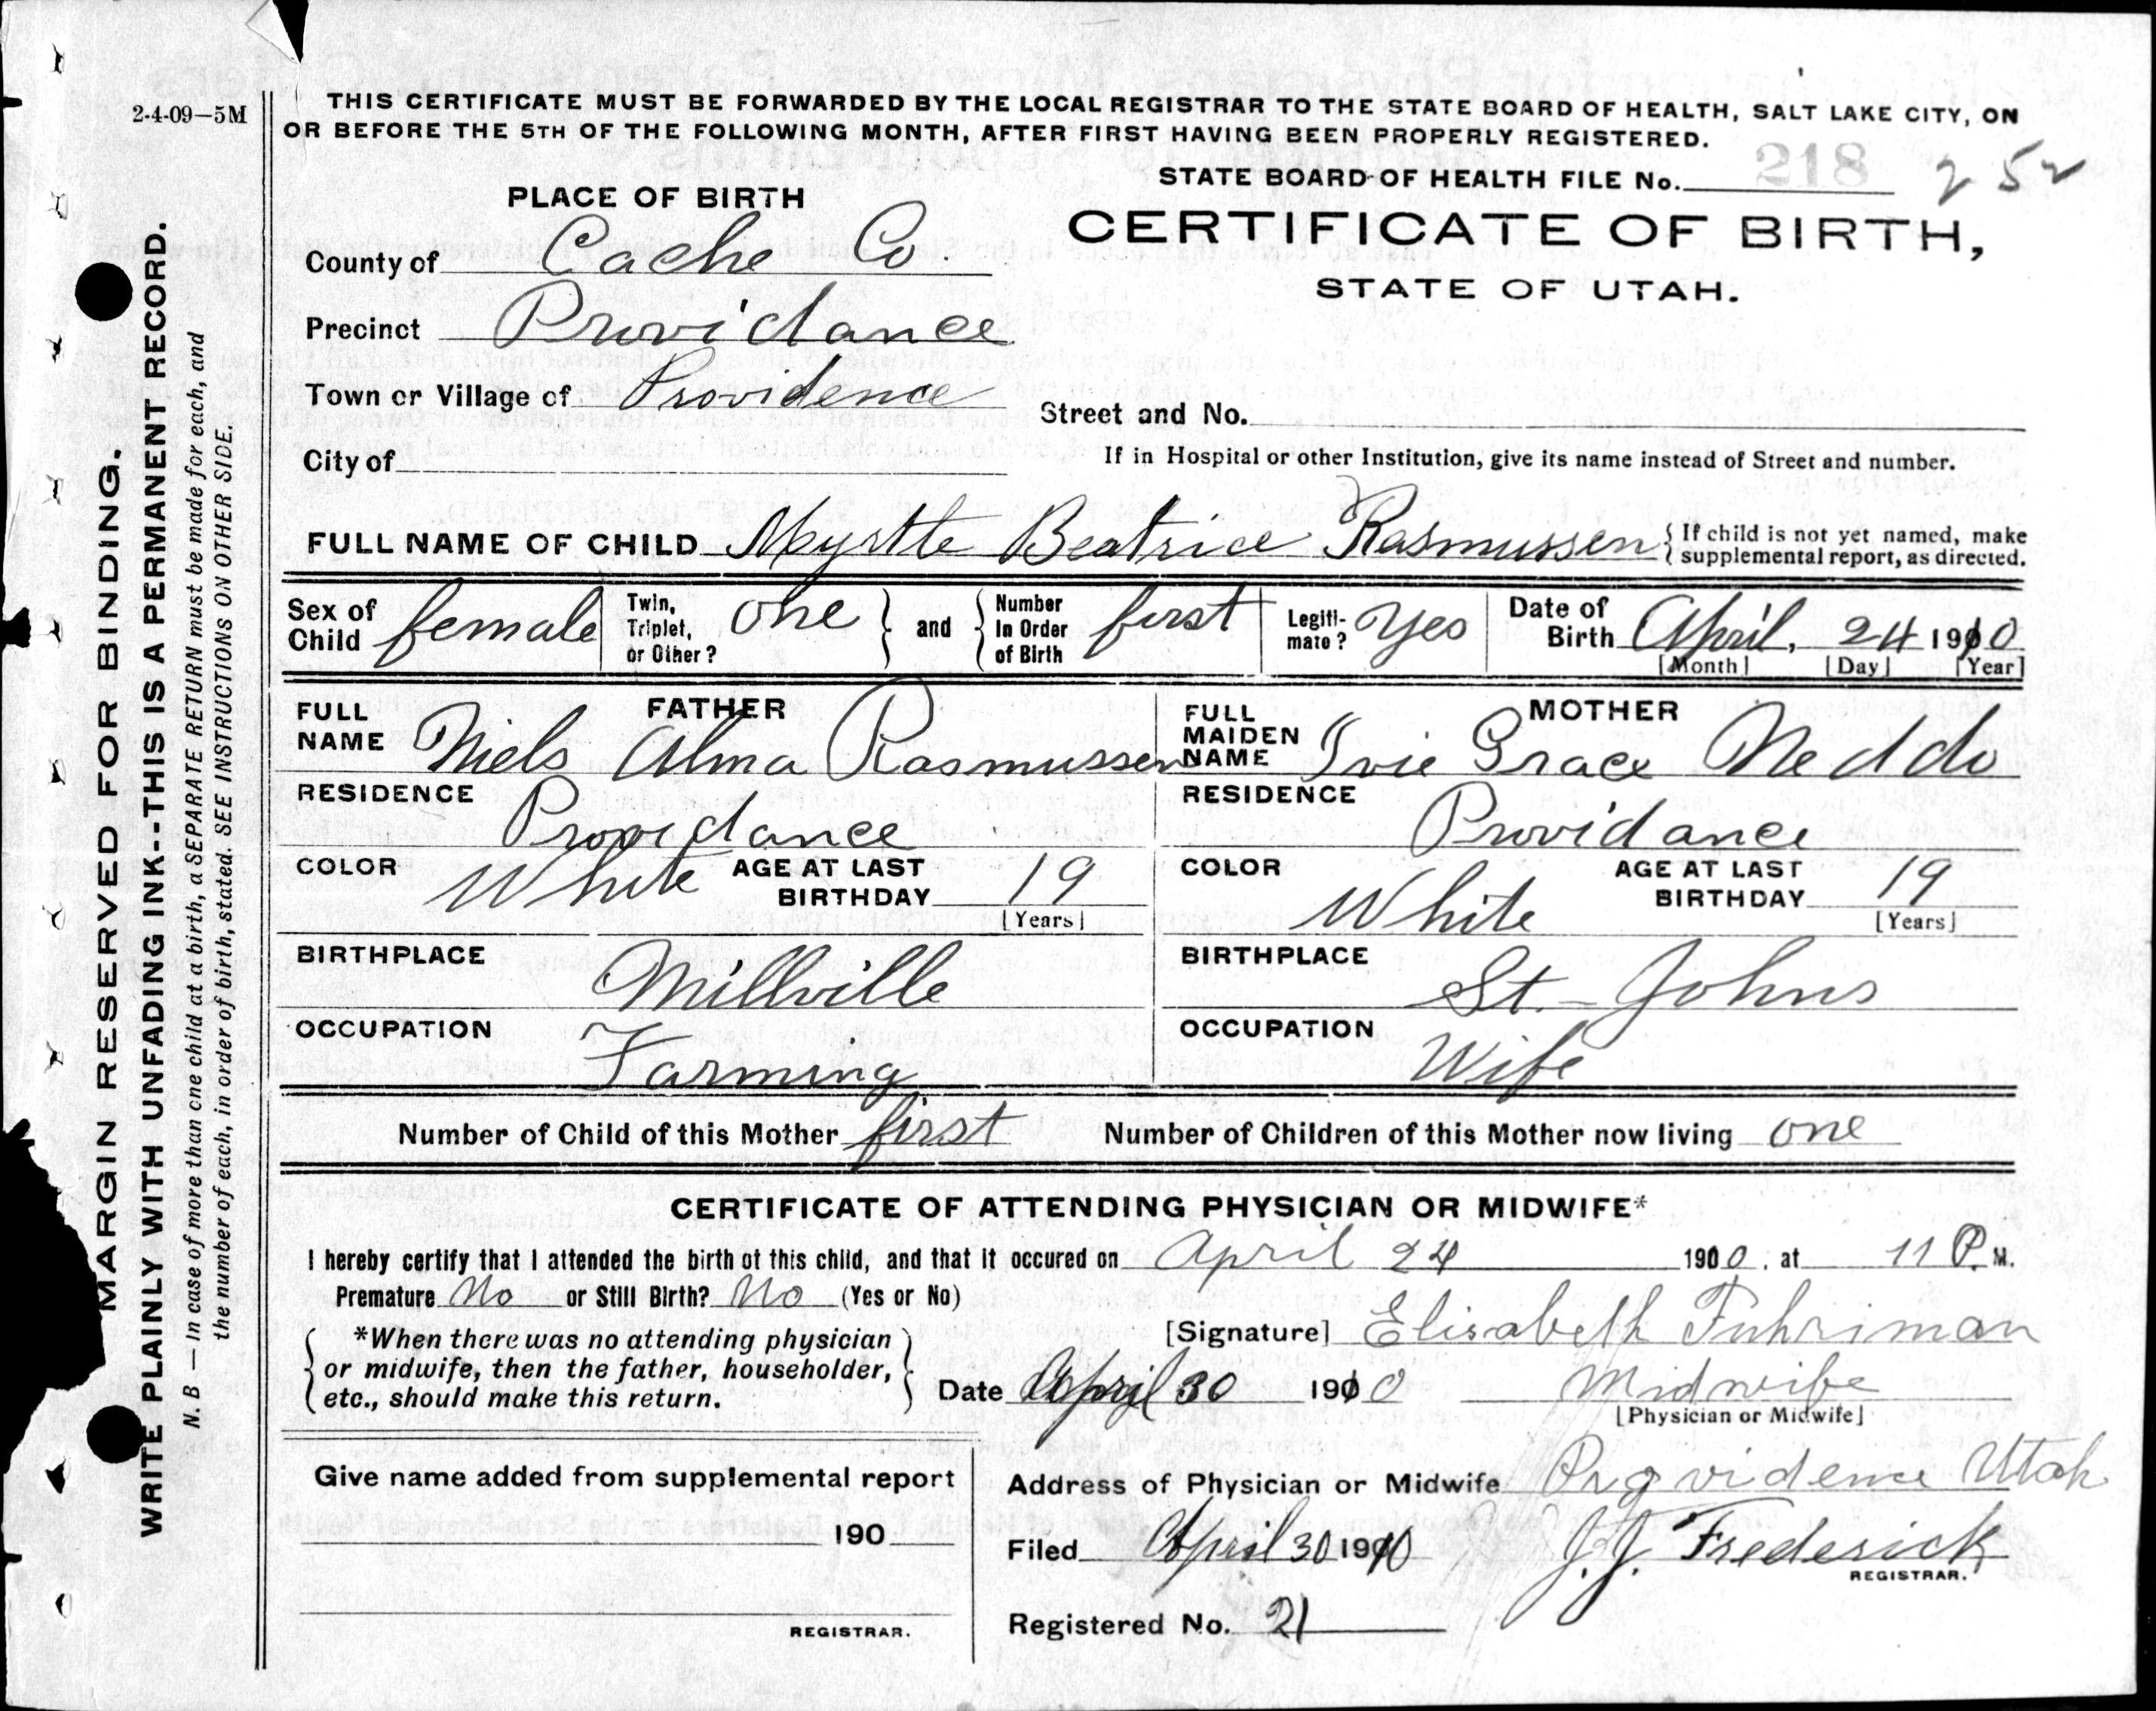 2-4-09—5M
THIS CERTIFICATE MUST BE FORWARDED BY THE LOCAL REGISTRAR TO THE STATE BOARD OF HEALTH, SALT LAKE CITY, ON
OR BEFORE THE 5TH OF THE FOLLOWING MONTH, AFTER FIRST HAVING BEEN PROPERLY REGISTERED.
STATE BOARD OF HEALTH FILE No. 218 252
PLACE OF BIRTH
CERTIFICATE OF BIRTH,
STATE OF UTAH.
County of Cache Co.
Precinct Providance
Town or Village of Providence
Street and No.
City of
If in Hospital or other Institution, give its name instead of Street and number.
FULL NAME OF CHILD Myrtle Beatrice Rasmussen { If child is not yet named, make
supplemental report, as directed.
Sex of Child female Twin, Triplet, or Other? one } and { Number In Order of Birth first Legiti-mate? Yes Date of Birth April, 24 1910
[Month] [Day] [Year]
FATHER
FULL NAME Niels Alma Rasmussen
RESIDENCE Providance
COLOR White AGE AT LAST BIRTHDAY 19
[Years]
BIRTHPLACE Millville
OCCUPATION Farming
MOTHER
FULL MAIDEN NAME Ivie Grace Neddo
RESIDENCE Providance
COLOR White AGE AT LAST BIRTHDAY 19
[Years]
BIRTHPLACE St. Johns
OCCUPATION Wife
Number of Child of this Mother first Number of Children of this Mother now living one
CERTIFICATE OF ATTENDING PHYSICIAN OR MIDWIFE*
I hereby certify that I attended the birth of this child, and that it occured on April 24 1910, at 11 P. M.
Premature No or Still Birth? No (Yes or No)
[Signature] Elisabeth Fuhriman
*When there was no attending physician
or midwife, then the father, householder,
etc., should make this return.
Date April 30 1910 Midwife
[Physician or Midwife]
Give name added from supplemental report
190
REGISTRAR.
Address of Physician or Midwife Providence Utah
Filed April 30 1910 J. J. Frederick
REGISTRAR.
Registered No. 21
MARGIN RESERVED FOR BINDING.
WRITE PLAINLY WITH UNFADING INK--THIS IS A PERMANENT RECORD.
N. B — In case of more than one child at a birth, a SEPARATE RETURN must be made for each, and
the number of each, in order of birth, stated. SEE INSTRUCTIONS ON OTHER SIDE.